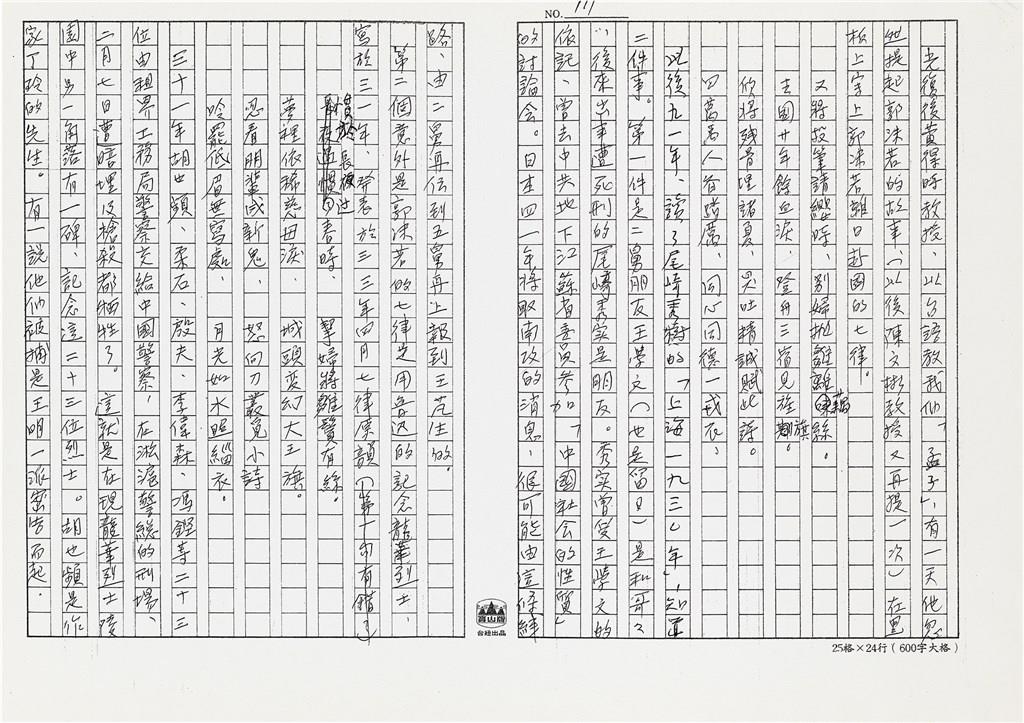 NO. 111
光復後黃得時教授、以台語教我們「孟子」,有一天他忽
他提起郭沫若的故事、(以後陳文彬教授又再提一次)在黑
板上寫上郭沫若離日赴國的七律。
又將投筆請纓時、別婦拋雛斷藕絲。
去國廿年餘血淚、登舟三宿見旌旗。
欣將殘骨埋諸夏、哭吐精誠賦此詩。
四萬萬人齊蹈厲、同心同德一戎衣、
以後九一年、讀了尾崎秀樹的「上海一九三〇年」,知道
二件事。第一件是二舅朋友王學文(也是留日)是和哥々
、後來出事遭死刑的尾崎秀实是朋友。秀实曾受王學文的
依託、曾去中共地下江蘇省委員参加「中國社会的性質」
的討論会。日本四一年將取南攻的消息、很可能由這條線
路、由二舅再伝到五舅再上報到王芃生的。
第二個意外是郭沫若的七律是用魯迅的記念龍華烈士、
寫於三一年、發表於三三年四月七律原韻(第十句有錯)
慣於長夜過春時、挈婦將雛鬢有絲。
夢裡依稀慈母淚、城頭変幻大王旗。
忍看朋輩成新鬼、怒向刀叢覓小詩
吟罷低眉無寫處、月光如水照緇衣。
三十一年胡也頻、柔石、殷夫、李偉森、馮鏗等二十三
位由租界工務局警察交給中國警察,在淞滬警総的刑場、
二月七日遭暗埋及槍殺都犧牲了。這就是在現龍華烈士陵
園中另一角落有一碑、記念這二十三位烈士。胡也頻是作
家丁玲的先生。有一說他们被捕是王明一派密告而起.
寶山牌
台社出品
25格×24行(600字大格)